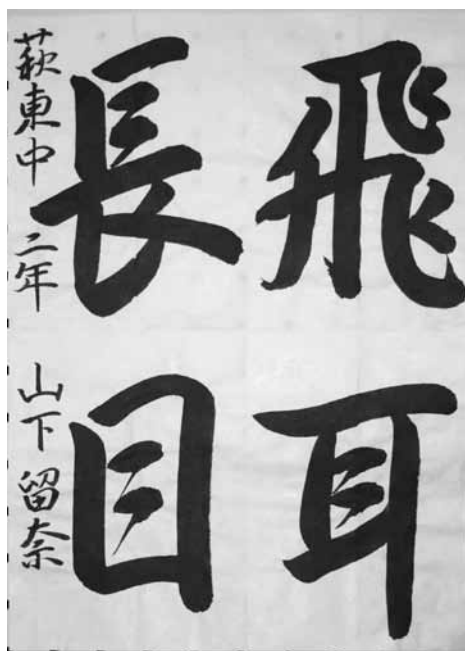 飛耳
長目
萩東中 二年 山下留奈